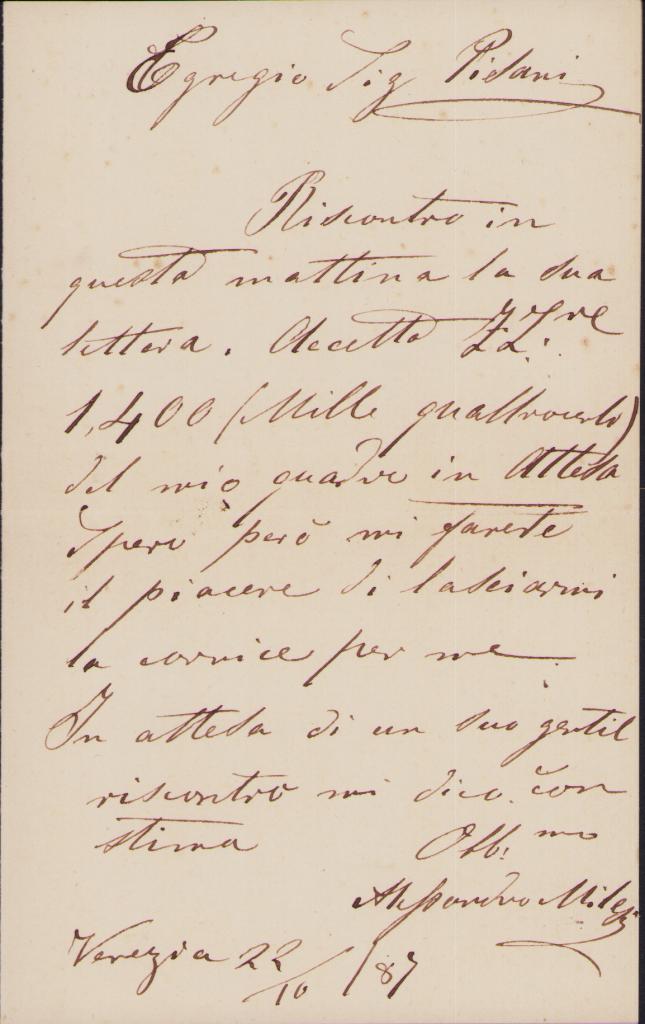 Egregio Sig Pisani
Riscontro in
questa mattina la sua
lettera. Accetto LL.re
1,400 (Mille quattrocento)
del mio quadro in Attesa
Spero però mi farete
il piacere di lasciarmi
la cornice per me
In attesa di un suo gentil
riscontro mi dico con
stima Obb.mo
Alessandro Milesi
Venezia 22/10/87